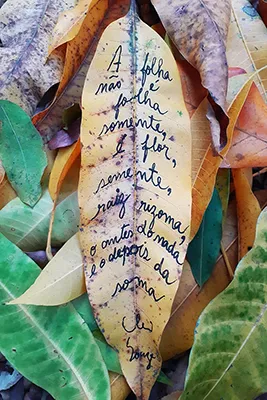 A folha
não é
folha
somente,
é flor,
semente,
raiz, rizoma,
o antes do nada
e o depois da
soma